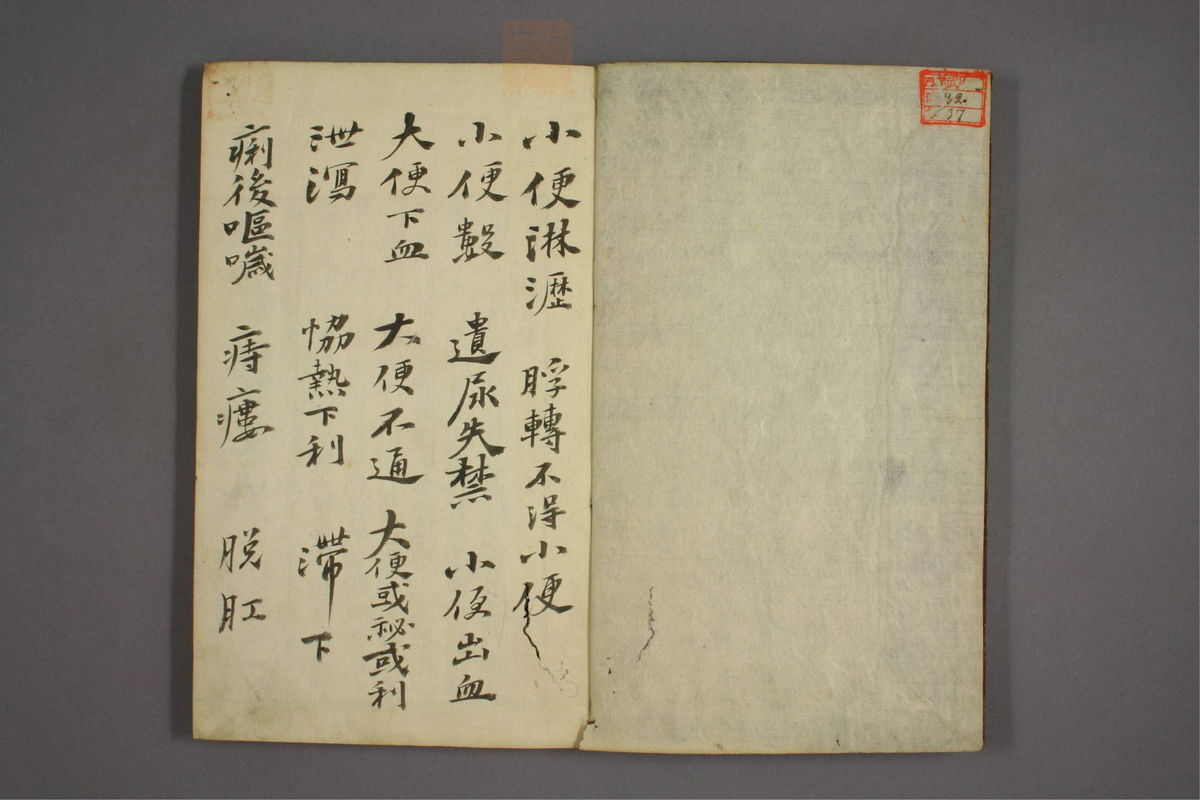 小便淋瀝　脬轉不得小便
小便數　遺尿失禁　小便出血
大便下血　大便不通　大便或祕或利
泄瀉　恊熱下利　滯下
痢後嘔噦　痔瘻　脱肛
82
37